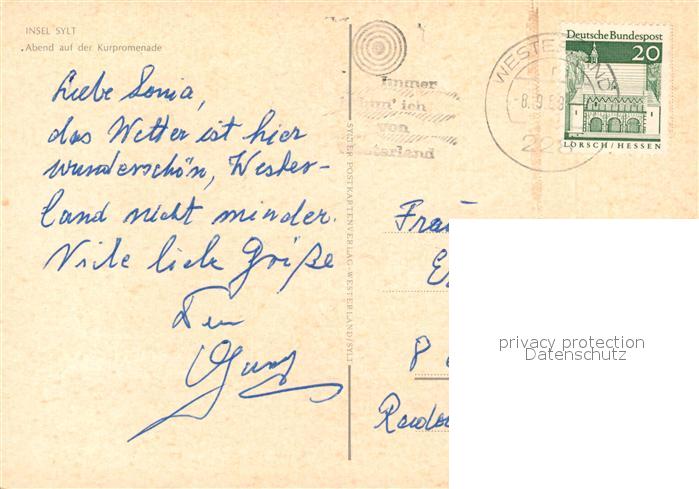 INSEL SYLT
Abend auf der Kurpromenade
Liebe Sonia,
das Wetter ist hier
wunderschön, Wester-
land nicht minder.
Viele liebe Grüße
SYLTER POSTKARTENVERLAG - WESTERLAND/SYLT
immer
ich
von
sterland
WESTERLAND
228
Deutsche Bundespost
20
LORSCH / HESSEN
Frau
privacy protection
Datenschutz